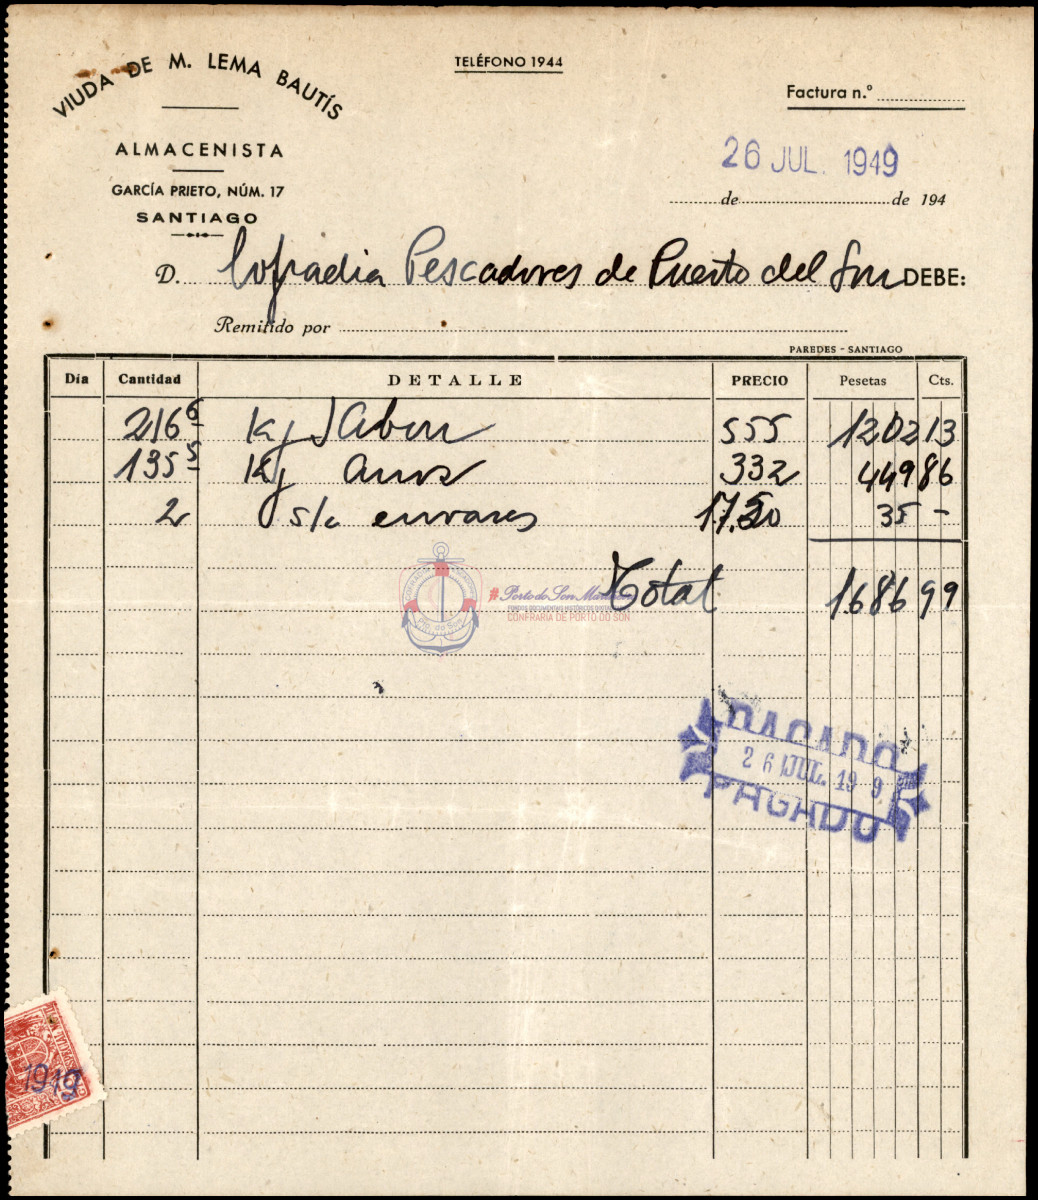 VIUDA DE M. LEMA BAUTÍS
TELÉFONO 1944
Factura n.º
ALMACENISTA
GARCÍA PRIETO, NÚM. 17
SANTIAGO
26 JUL. 1949
de de 194
D. Cofradia Pescadores de Puerto del Son DEBE:
Remitido por
PAREDES - SANTIAGO
Día Cantidad DETALLE PRECIO Pesetas Cts.
216 6 Kg Jabon 555 1202 13
135 5 Kg Arroz 332 449 86
2 s/c envases 17.50 35 -
Total 1686 99
CONFRARIA DE PORTO DO SON
PAGADO
26 JUL. 19 9
PAGADO
1949